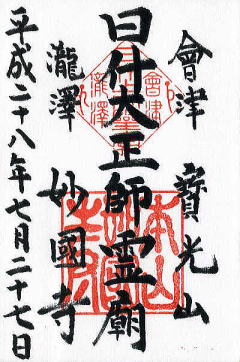 會津 寶光山
日什大正師霊廟
瀧澤 妙國寺
平成二十八年七月二十七日